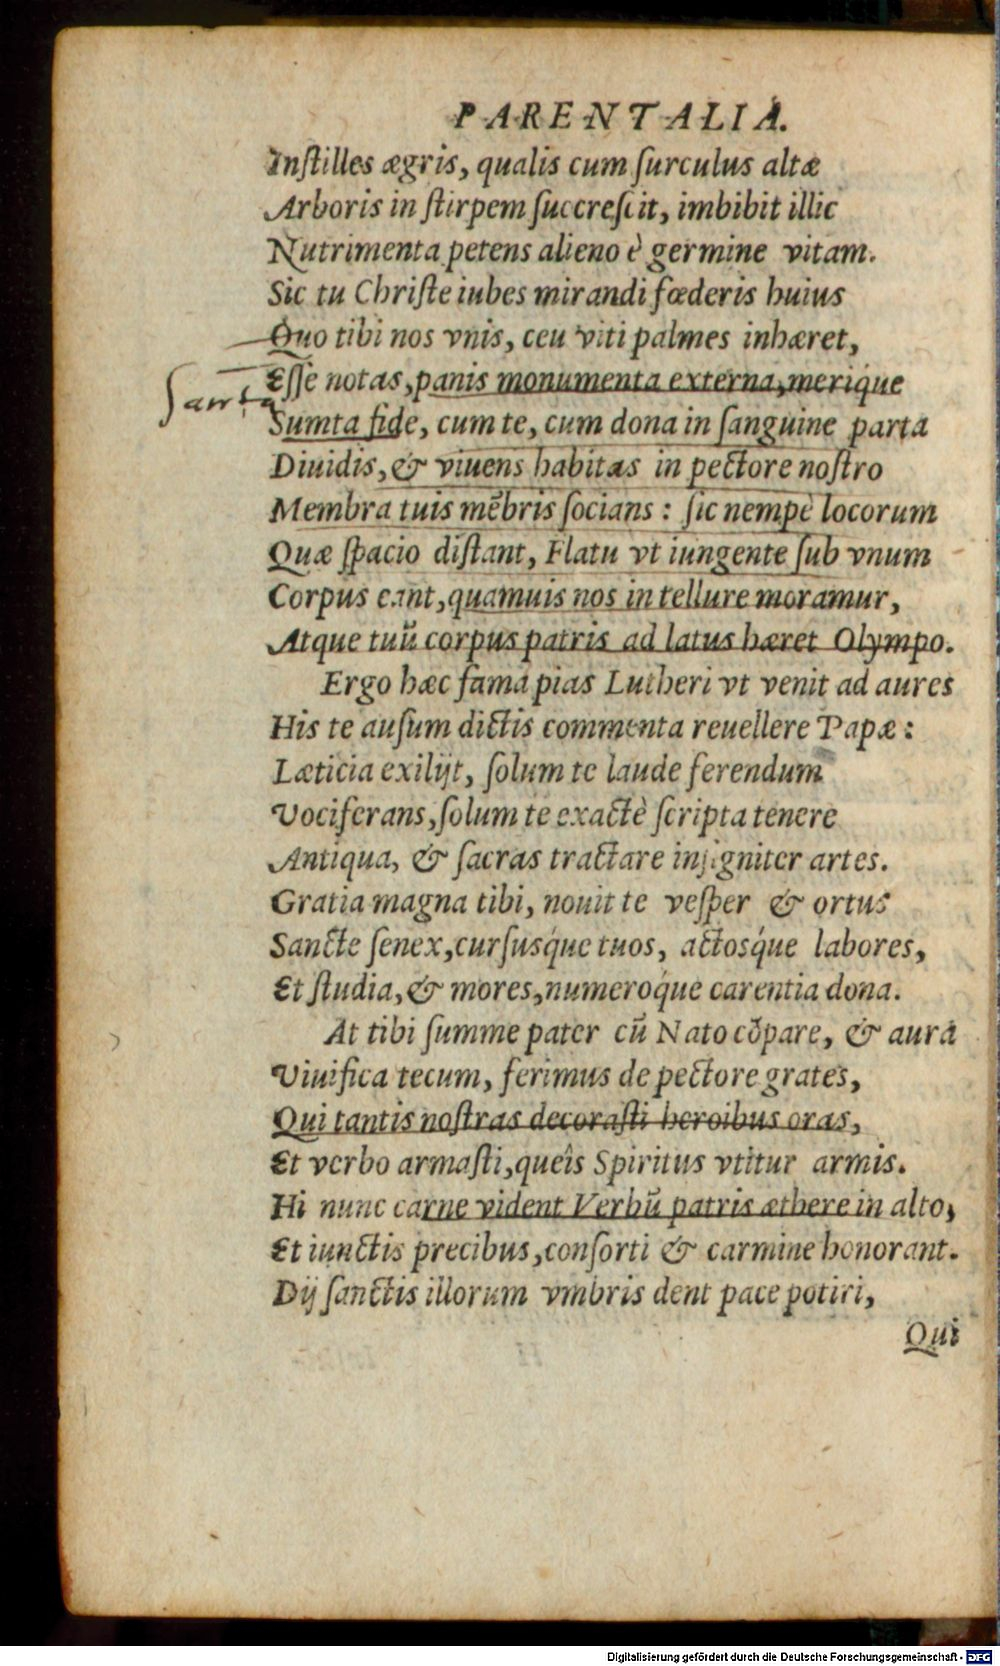 PARENTALIA.
Inſtilles ægris, qualis cum ſurculus altæ
Arboris in ſtirpem ſuccreſcit, imbibit illic
Nutrimenta petens alieno è germine vitam.
Sic tu Chriſte iubes mirandi fœderis huius
Quo tibi nos vnis, ceu viti palmes inhæret,
Eſſe notas, panis monumenta externa, merique
Sumta fide, cum te, cum dona in ſanguine parta
Diuidis, & viuens habitas in pectore noſtro
Membra tuis mēbris ſocians : ſic nempe locorum
Quæ ſpacio diſtant, Flatu vt iungente ſub vnum
Corpus eant, quamuis nos in tellure moramur,
Atque tuū corpus patris ad latus hæret Olympo.
Ergo hæc fama pias Lutheri vt venit ad aures
His te auſum dictis commenta reuellere Papæ :
Læticia exilijt, ſolum te laude ferendum
Vociferans, ſolum te exactè ſcripta tenere
Antiqua, & ſacras tractare inſigniter artes.
Gratia magna tibi, nouit te veſper & ortus
Sancte ſenex, curſusq́ue tuos, actosq́ue labores,
Et ſtudia, & mores, numeroq́ue carentia dona.
At tibi ſumme pater cū Nato cōpare, & aura
Viuifica tecum, ferimus de pectore grates,
Qui tantis noſtras decoraſti heroibus oras,
Et verbo armaſti, queîs Spiritus vtitur armis.
Hi nunc carne vident Verbū patris æthere in alto,
Et iunctis precibus, conſorti & carmine honorant.
Dij ſanctis illorum vmbris dent pace potiri,
Qui
Digitalisierung gefördert durch die Deutsche Forschungsgemeinschaft - DFG